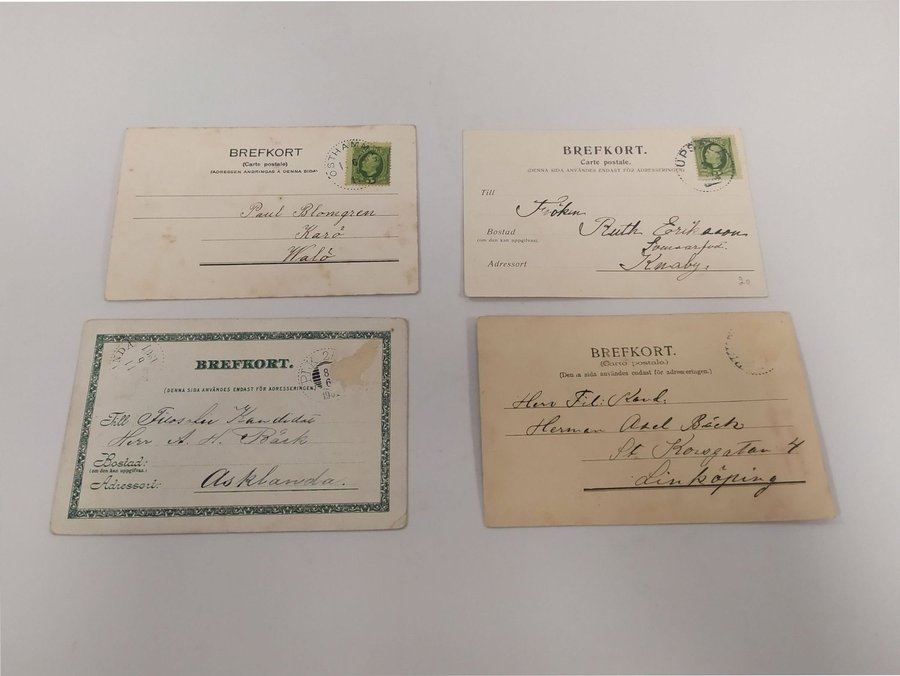 BREFKORT
(Carte postale)
(ADRESSEN ANBRINGAS Å DENNA SIDA)
ÖSTHAMM
Paul Blomgren
Karö
Walö
BREFKORT.
Carte postale.
(DENNA SIDA ANVÄNDES ENDAST FÖR ADRESSERINGEN)
UPS
Till
Fröken
Bostad
Ruth Erikson
(om den kan uppgifvas)
Adressort
Knaby.
20
BREFKORT.
(DENNA SIDA ANVÄNDES ENDAST FÖR ADRESSERINGEN)
8
6
Till
Kandidat
Herr A. H. Bäck
Bostad:
(om den kan uppgifvas.)
Adressort:
Asklanda.
BREFKORT.
(Carte postale.)
(Denna sida användes endast för adresseringen.)
Herr Fil: Kand.
Herman Axel Bäck
St. Korsgatan 4
Linköping